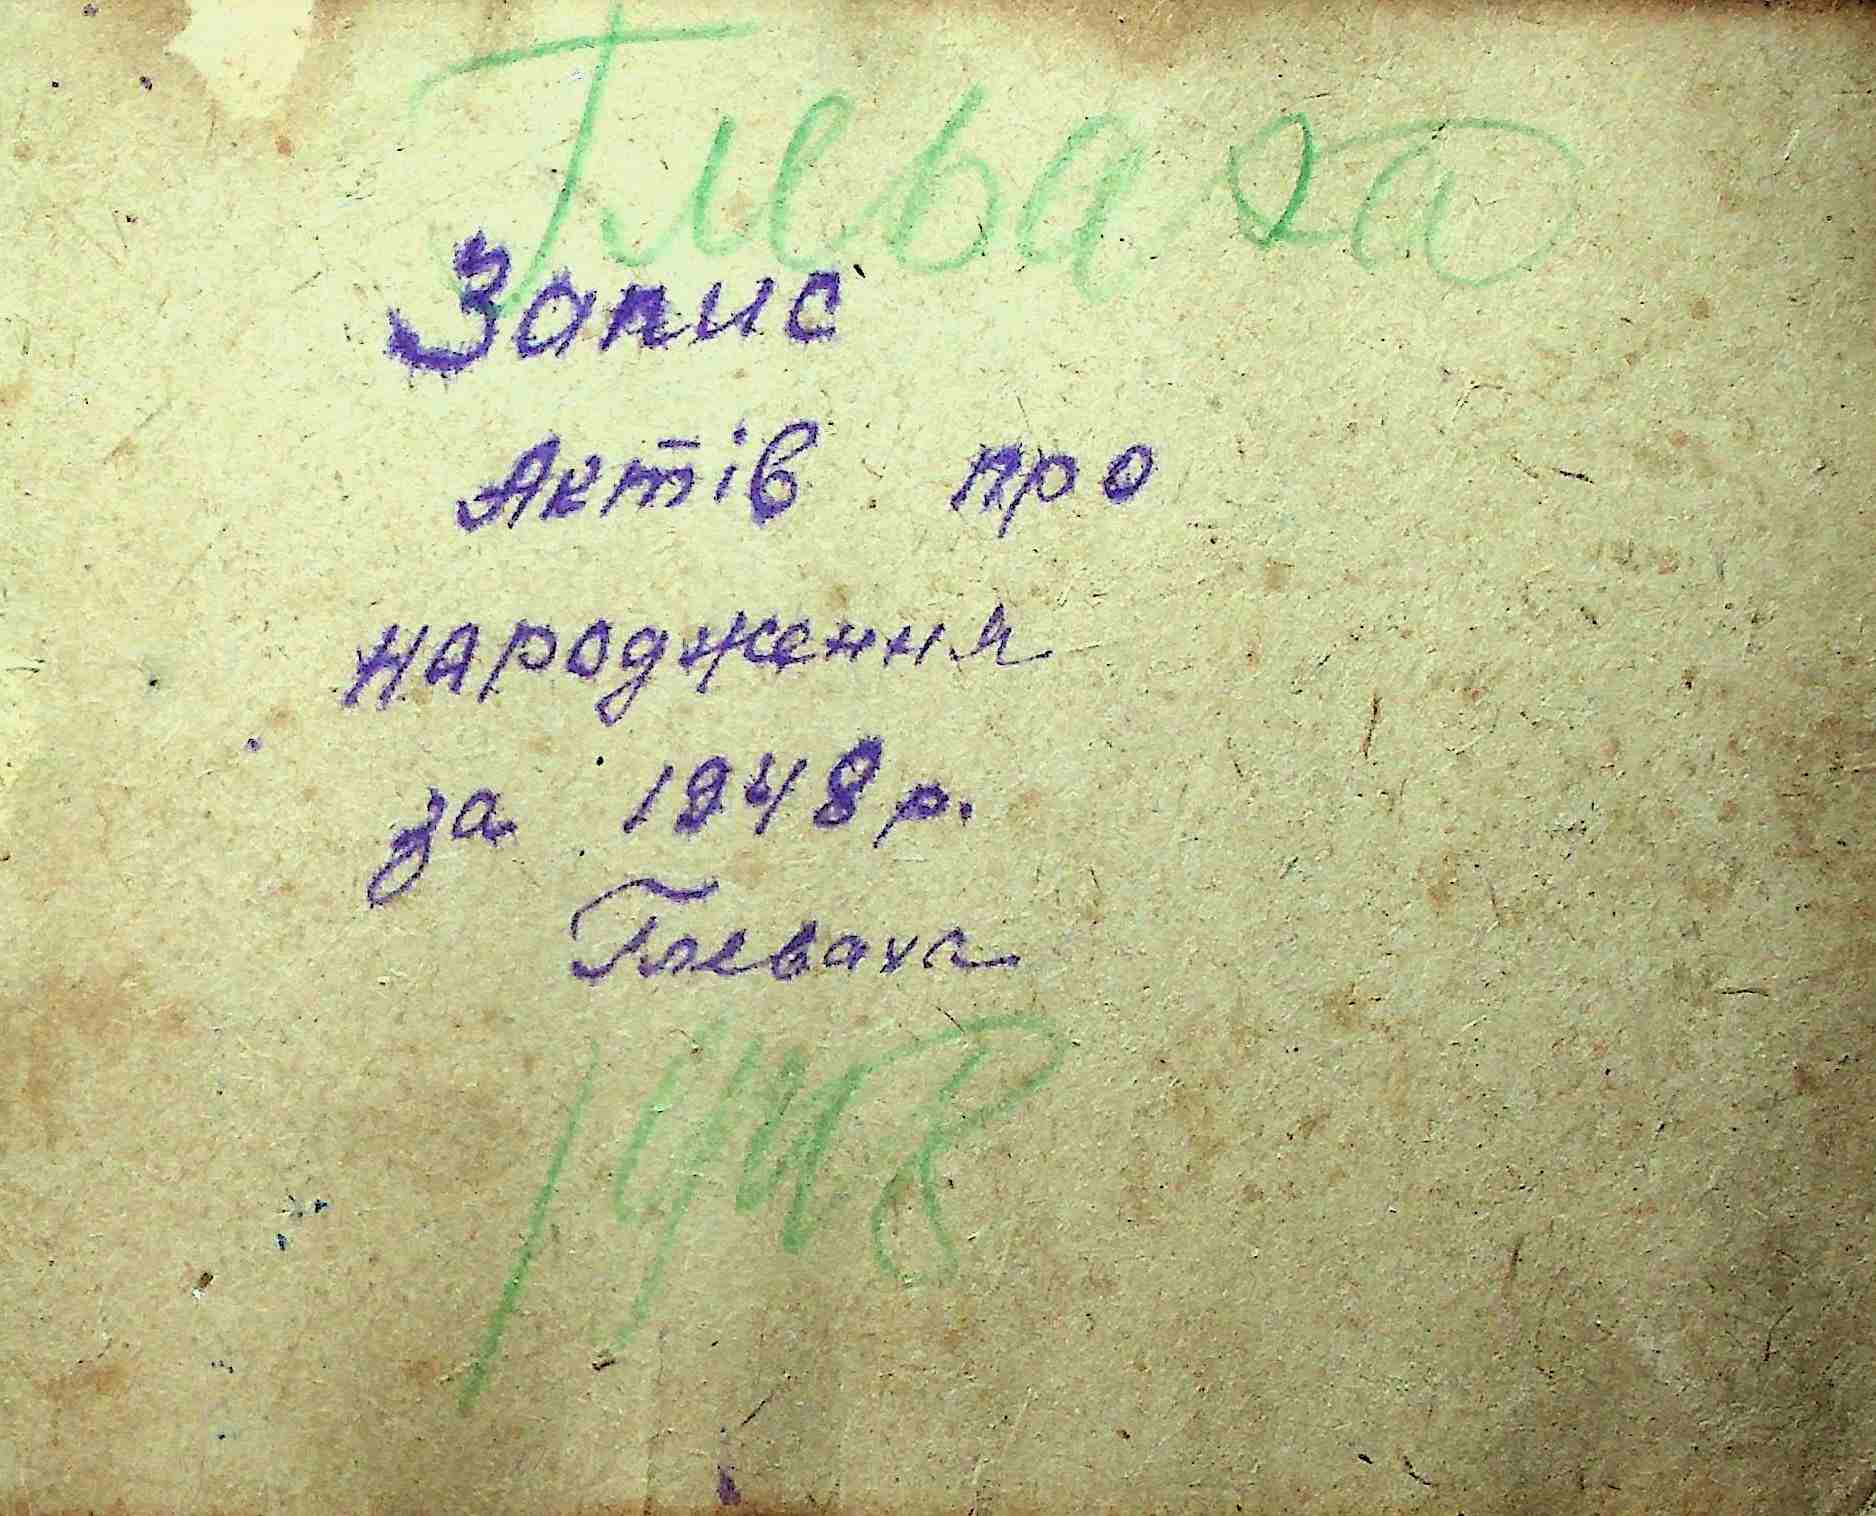 Глеваха
Запис
Актів про
народження
за 1948 р.
Глеваха
1948